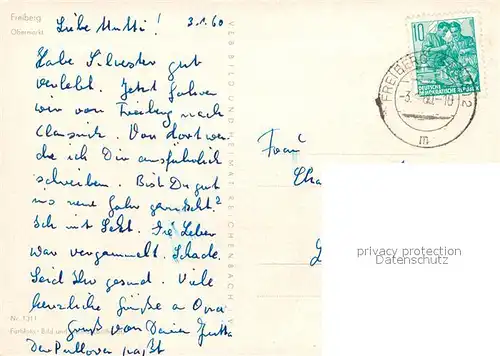 Freiberg
Obermarkt
Liebe Mutti! 3.1.60
Habe Silvester gut
verlebt. Jetzt fahren
wir von Freiberg nach
Clausnitz. Von dort wer
de ich Dir ausführlich
schreiben. Bist Du gut
ins neue Jahr gerutscht?
Ich mit Sekt. Die Leber
war vergammelt. Schade.
Seid Ihr gesund. Viele
herzliche Grüße a Oma
Gruß von Deiner Jutta
Der Pullover paßt
Nr. 1211
Farbfoto: Bild und
VEB BILD UND HEIMAT REICHENBACH I. V.
10
DEUTSCHE
DEMOKRATISCHE REPUBLIK
FREIBERG
2
m
Frau
privacy protection
watermark